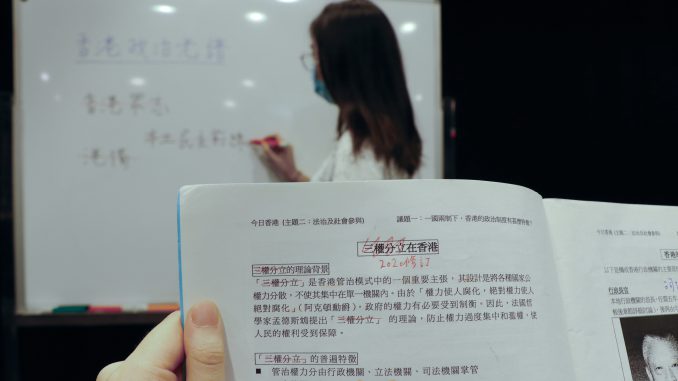 香港政治光譜
香港眾志
本土民主前線
港
今日香港 (主題二：法治及社會參與)
議題一：一國兩制下，香港的政治制度有甚麼特徵？
三權分立在香港
2020修訂
三權分立的理論背景
「三權分立」是香港管治模式中的一個重要主張，其設計是將各種國家公
權力分散，不使其集中在單一機關內。由於「權力使人腐化，絕對權力使人
絕對腐化」（阿克頓勳爵），政府的權力有必要受到制衡。因此，法國哲
學家孟德斯鳩提出「三權分立」的理論，防止權力過度集中和濫權，使
人民的權利受到保障。
「三權分立」的普遍特徵
■ 管治權力分由行政機關、立法機關、司法機關掌管
今日香港 (主題二：法治及社會參與)
香港
行政長官